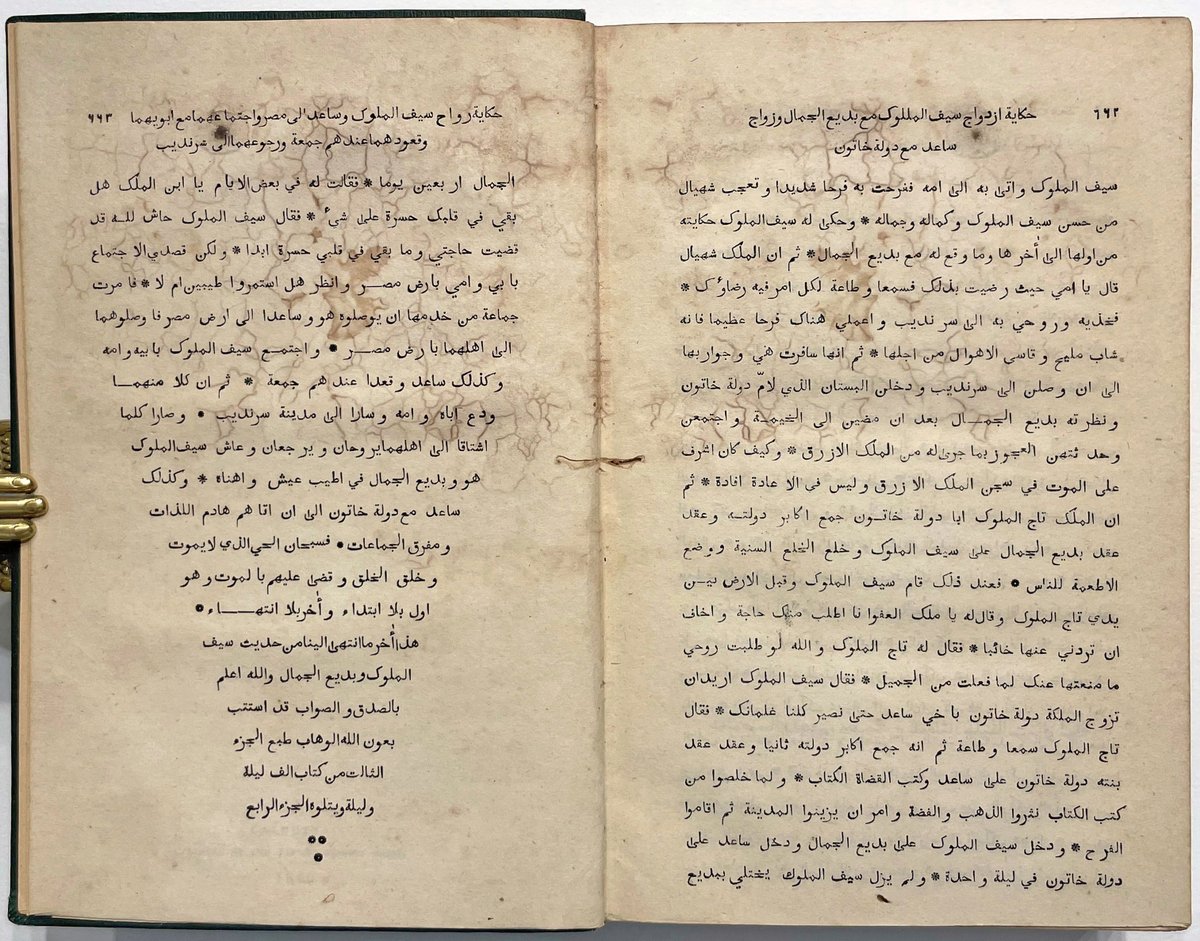 ٦٦٢
حكاية ازدواج سيف المللوك مع بديع الجمال وزواج
ساعد مع دولة خاتون
سيف الملوك واتى به الى امه ففرحت به فرحا شديدا و تعجب شهيال
من حسن سيف الملوك وكماله وجماله * وحكى له سيف الملوك حكايته
من اولها الى أخرها وما وقع له مع بديع الجمال * ثم ان الملك شهيال
قال يا امي حيث رضيت بذلك فسمعا وطاعة لكل امر فيه رضاؤك *
فخذيه وروحي به الى سرنديب واعملي هناك فرحا عظيما فانه
شاب مليح وقاسى الاهوال من اجلها * ثم انها سافرت هي وجواريها
الى ان وصلن الى سرنديب ودخلن البستان الذي لامّ دولة خاتون
ونظرته بديع الجمال بعد ان مضين الى الخيمة واجتمعن
وحدثتهن العجوز بما جرى له من الملك الازرق * وكيف كان اشرف
على الموت في سجن الملك الازرق وليس فى الاعادة افادة * ثم
ان الملك تاج الملوك ابا دولة خاتون جمع اكابر دولته وعقد
عقد بديع الجمال على سيف الملوك و خلع الخلع السنية ووضع
الاطعمة للناس * فعند ذلك قام سيف الملوك وقبل الارض بين
يدي تاج الملوك وقال له يا ملك العفوا نا اطلب منك حاجة و اخاف
ان تردني عنها خائبا * فقال له تاج الملوك و الله لو طلبت روحي
ما منعتها عنك لما فعلت من الجميل * فقال سيف الملوك اريدان
تزوج الملكة دولة خاتون باخي ساعد حتى نصير كلنا غلمانك * فقال
تاج الملوك سمعا وطاعة ثم انه جمع اكابر دولته ثانيا وعقد عقد
بنته دولة خاتون على ساعد وكتب القضاة الكتاب * و لما خلصوا من
كتب الكتاب نثروا الذهب والفضة وامر ان يزينوا المدينة ثم اقاموا
الفرح * ودخل سيف الملوك على بديع الجمال ودخل ساعد على
دولة خاتون في ليلة واحدة * ولم يزل سيف الملوك يختلي ببديع
٦٦٣
حكاية رواح سيف الملوك وساعد الى مصر واجتماعهما مع ابويهما
وقعودهما عندهم جمعة ورجوعهما الى شرنديب
الجمال اربعين يوما * فقالت له في بعض الايام يا ابن الملك هل
بقي في قلبك حسرة على شئ * فقال سيف الملوك حاش لله قد
قضيت حاجتي وما بقي في قلبي حسرة ابدا * ولكن قصدي الاجتماع
بابي وامي بارض مصر وانظر هل استمروا طيبين ام لا * فامرت
جماعة من خدمها ان يوصلوه هو وساعدا الى ارض مصر فاوصلوهما
الى اهلهما بارض مصر * واجتمع سيف الملوك بابيه وامه
وكذلك ساعد وقعدا عندهم جمعة * ثم ان كلا منهما
ودع اباه وامه وسارا الى مدينة سرنديب * وصارا كلما
اشتاقا الى اهلهما يروحان ويرجعان وعاش سيف الملوك
هو وبديع الجمال في اطيب عيش واهناه * وكذلك
ساعد مع دولة خاتون الى ان اتاهم هادم اللذات
ومفرق الجماعات * فسبحان الحي الذي لا يموت
وخلق الخلق وقضى عليهم بالموت وهو
اول بلا ابتداء وأخر بلا انتهاء *
هذا أخر ما انتهى الينا من حديث سيف
الملوك وبديع الجمال والله اعلم
بالصدق والصواب قد استتب
بعون الله الوهاب طبع الجزء
الثالث من كتاب الف ليلة
وليلة ويتلوه الجزء الرابع